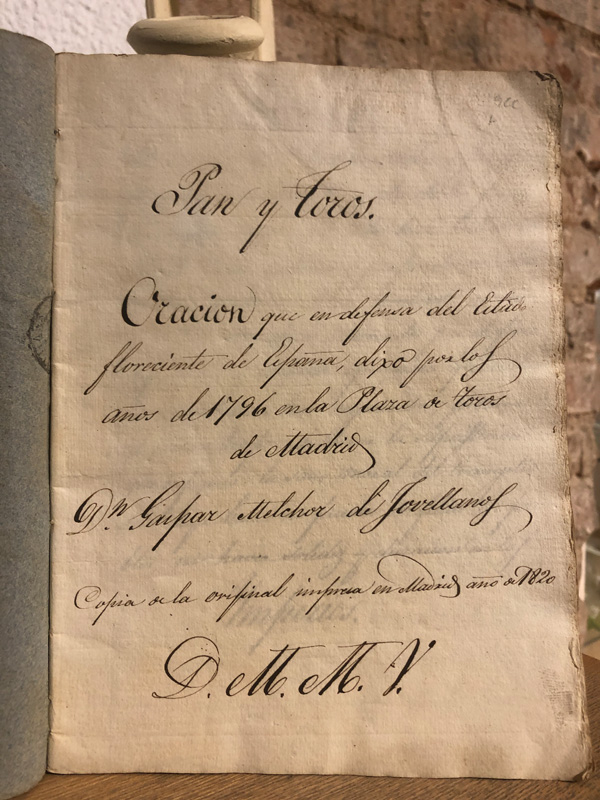 Pan y Toros.
Oracion que en defensa del Estado
floreciente de España, dixo por los
años de 1796 en la Plaza de Toros
de Madrid
Dn Gaspar Melchor de Jovellanos
Copia de la original impresa en Madrid año de 1820
D. M. M. V.